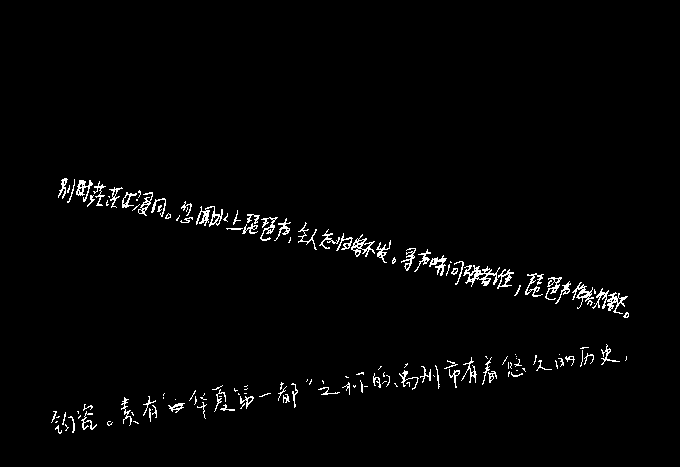 别时茫茫江浸月。忽闻水上琵琶声,主人忘归客不发。寻声暗问弹者谁,琵琶声停欲语迟。
钧瓷。素有“华夏第一都”之称的禹州市有着悠久的历史,